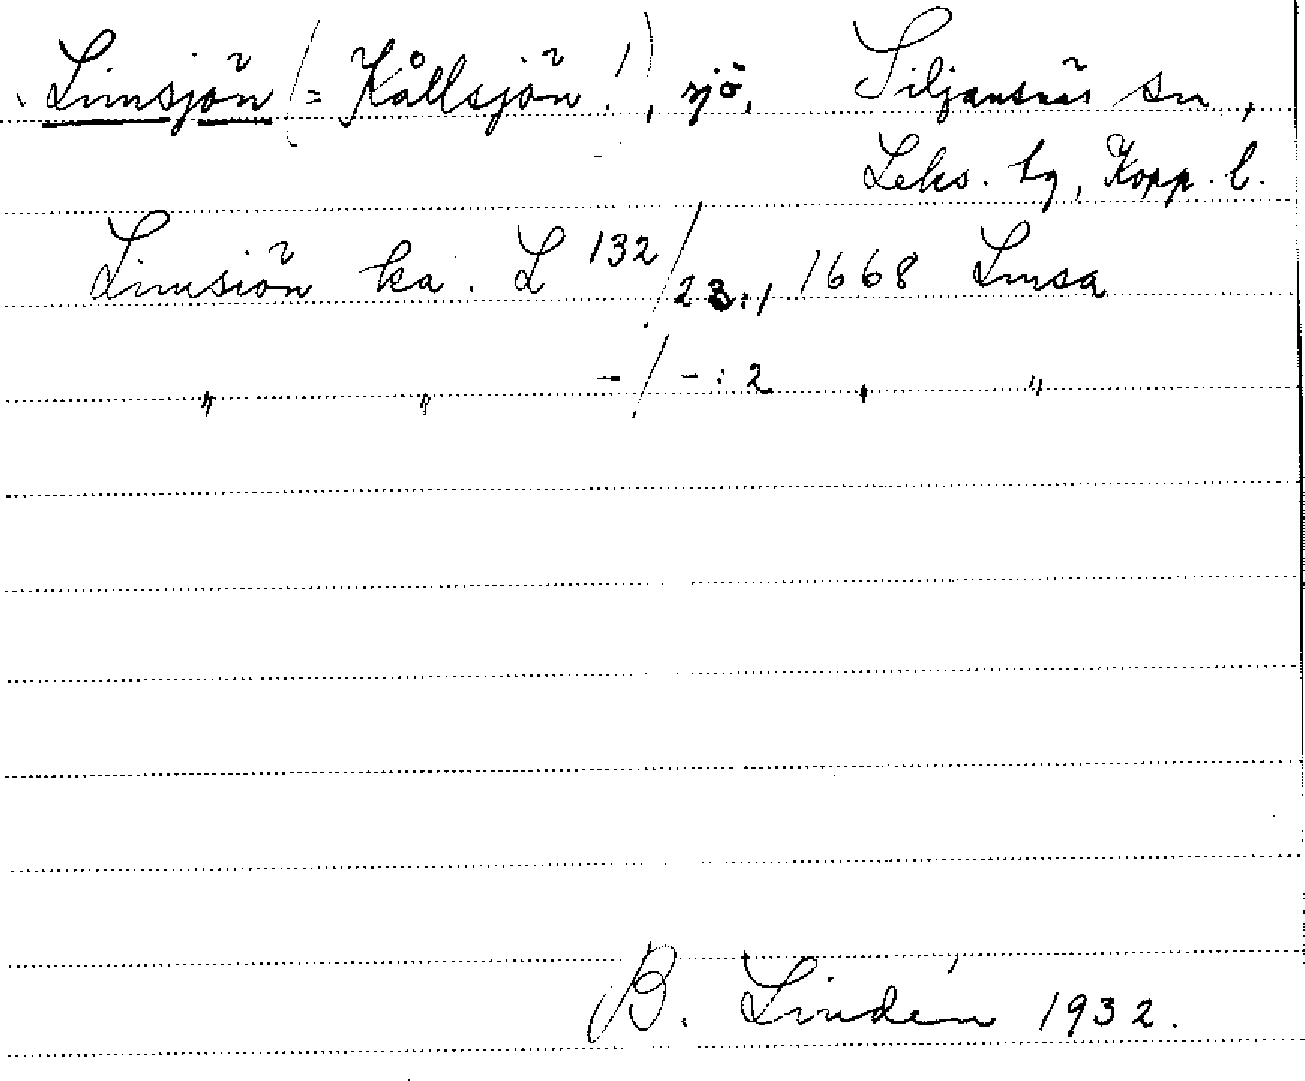 Limsjön (= Kållsjön!), sjö, Siljansnäs sn,
Leks. tg, Kopp. l.
Limsiön ka. L 132/23:1 1668 Lmsa
" " -/-:2 , "
B. Lindén 1932.